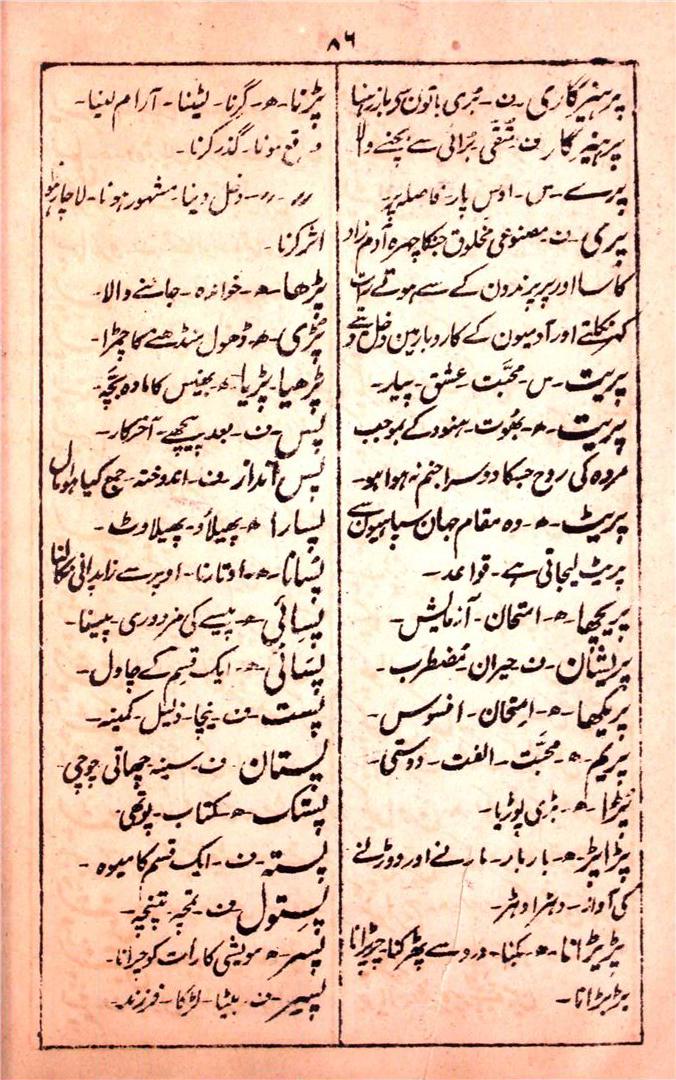 ۸۶
پرہیزگاری ۔ ف ۔ بُری باتون سے باز رہنا
پرہیزگار ف ۔ مُتّقی بُرائی سے بچنے والا
پرے ۔ س ۔ اوس پار ۔ فاصلہ پر
پری ۔ ف ۔ مصنوعی مخلوق جسکا چہرہ آدم زاد
کا سا اور پر پرندون کے سے ہوتے رات
کو نکلتے اور آدمیون کے کاروبار مین دخل دیتے
پریت ۔ س ۔ محبَّت ۔ عشق ۔ پیار ۔
پریت ۔ ھ ۔ بھُوت ۔ ہنود کے بموجب
مردہ کی روح جسکا دوسرا جنم نہ ہوا ہو ۔
پریٹ ۔ ھ ۔ وہ مقام جہان سپاہیون سے
پریٹ لیجاتی ہے ۔ قواعد ۔
پریچھا ۔ ھ ۔ امتحان ۔ آزمایش ۔
پریشان ۔ ف ۔ حیران ۔ مُضطرب ۔
پریکھا ۔ ھ ۔ اِمتحان ۔ افسوس ۔
پریم ۔ ھ ۔ محبَّت ۔ الفت ۔ دوستی ۔
پُڑا ۔ ھ ۔ بڑی پوڑیا ۔
پڑاپڑ ۔ ھ ۔ باربار ۔ مارنے اور دوڑنے
کی آواز ۔ دہڑادہڑ ۔
پڑپڑانا ۔ ھ ۔ بکنا ۔ درد سے پھڑکنا چرچرانا
بڑبڑانا ۔
پڑنا ۔ ھ ۔ گِرنا ۔ لیٹنا ۔ آرام لینا ۔
واقع ہونا ۔ گذر کرنا ۔
〃 ۔ 〃 ۔ دخل دینا ۔ مشہور ہونا ۔ لاچار ہونا
اثر کرنا ۔
پڑھا ۔ ھ ۔ خواندہ ۔ جاننے والا ۔
پُڑی ۔ ھ ۔ ڈھول منڈھنے کا چمڑا ۔
پڑھیا ۔ پڑیا ۔ ھ ۔ بھینس کا مادہ بچَّہ ۔
پس ۔ ف ۔ بعد پیچھے ۔ آخر کار ۔
پس انداز ۔ ف ۔ اندوختہ ۔ جمع کیا ہوا مال
پسارا ۔ ھ ۔ پھیلاؤ ۔ پھیلاوٹ ۔
پسانا ۔ ھ ۔ اوتارنا ۔ اوپر سے زاید پانی نکالنا
پسائی ۔ ھ ۔ پیسنے کی مزدوری ۔ پیسنا ۔
پسائی ۔ ھ ۔ ایک قسم کے چاول ۔
پست ۔ ف ۔ نیچا ۔ ذلیل ۔ کمینہ ۔
پستان ۔ ف ۔ سینہ چھاتی چوچی ۔
پستک ۔ ھ ۔ کتاب ۔ پوتھی
پستہ ۔ ف ۔ ایک قسم کا میوہ ۔
پستول ۔ ف ۔ تمچہ ۔ تپنچہ ۔
پسر ۔ ھ ۔ مویشی کا رات کو چرانا ۔
پسر ۔ ف ۔ بیٹا ۔ لڑکا ۔ فرزند ۔